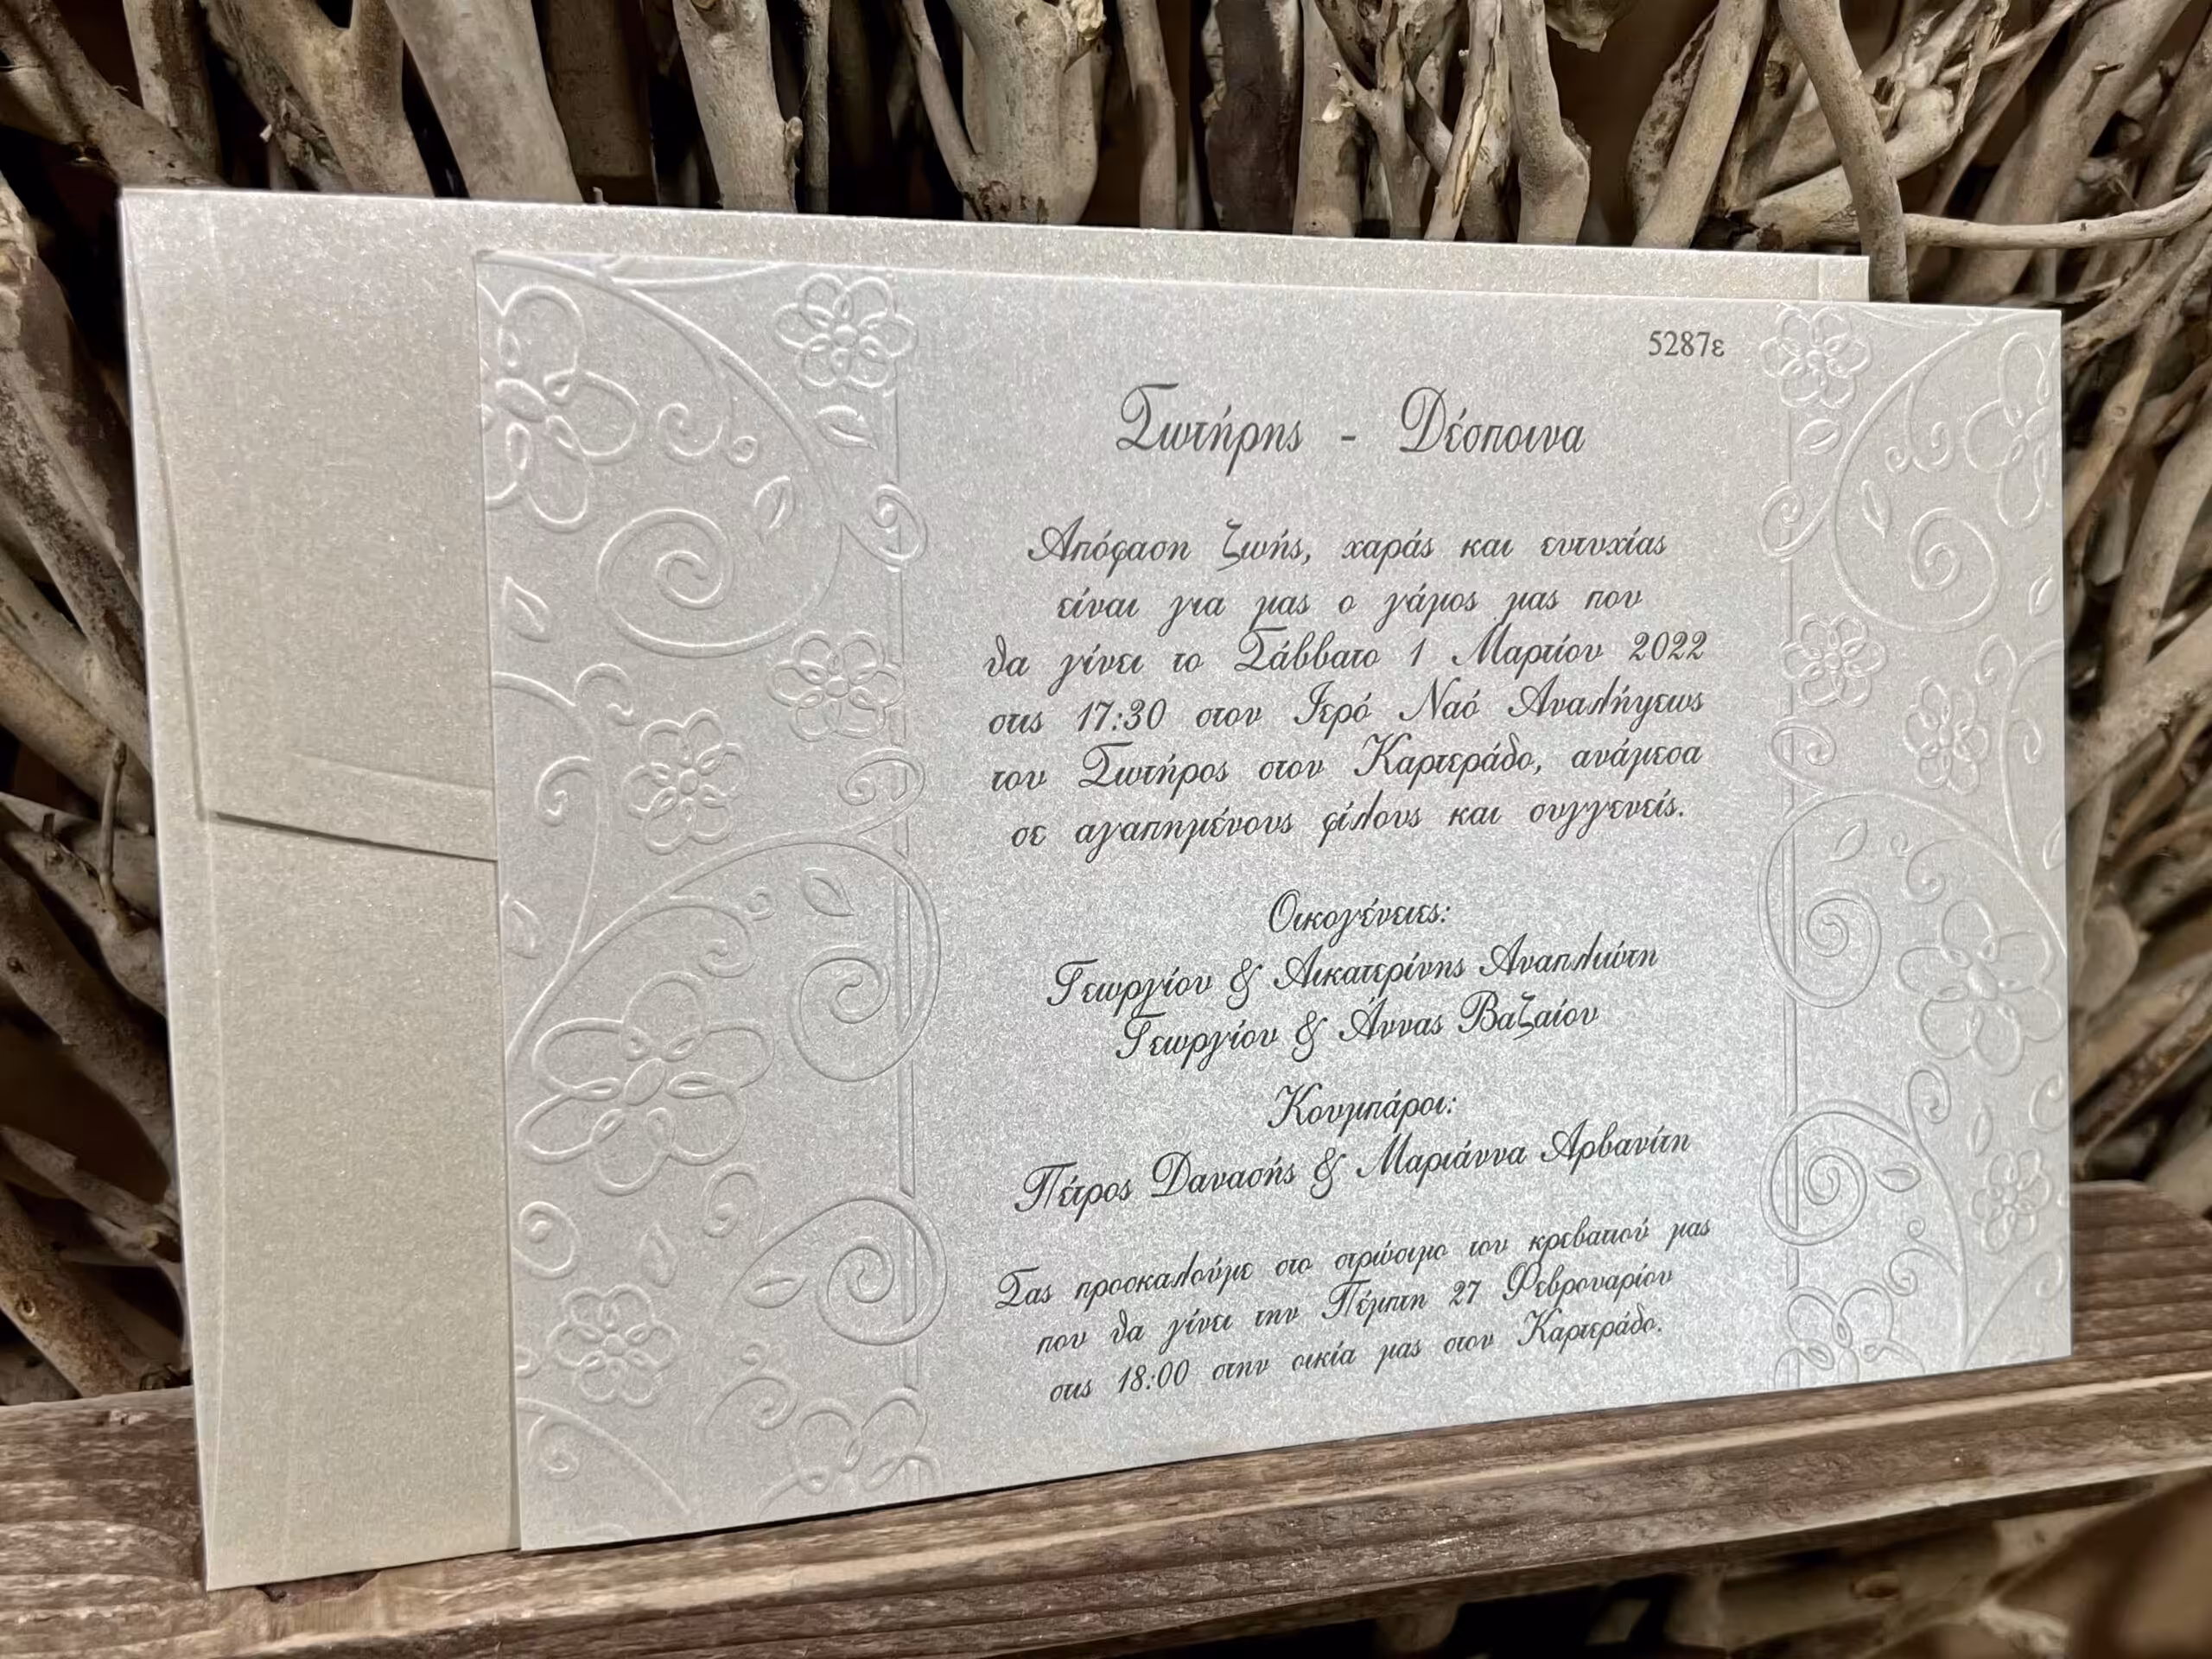 5287ε
Σωτήρης - Δέσποινα
Απόφαση ζωής, χαράς και ευτυχίας
είναι για μας ο γάμος μας που
θα γίνει το Σάββατο 1 Μαρτίου 2022
στις 17:30 στον Ιερό Ναό Αναλήψεως
του Σωτήρος στον Καρτεράδο, ανάμεσα
σε αγαπημένους φίλους και συγγενείς.
Οικογένειες:
Γεωργίου & Αικατερίνης Αναπλιώτη
Γεωργίου & Άννας Βαζαίου
Κουμπάροι:
Πέτρος Δανασής & Μαριάννα Αρβανίτη
Σας προσκαλούμε στο στρώσιμο του κρεβατιού μας
που θα γίνει την Πέμπτη 27 Φεβρουαρίου
στις 18:00 στην οικία μας στον Καρτεράδο.